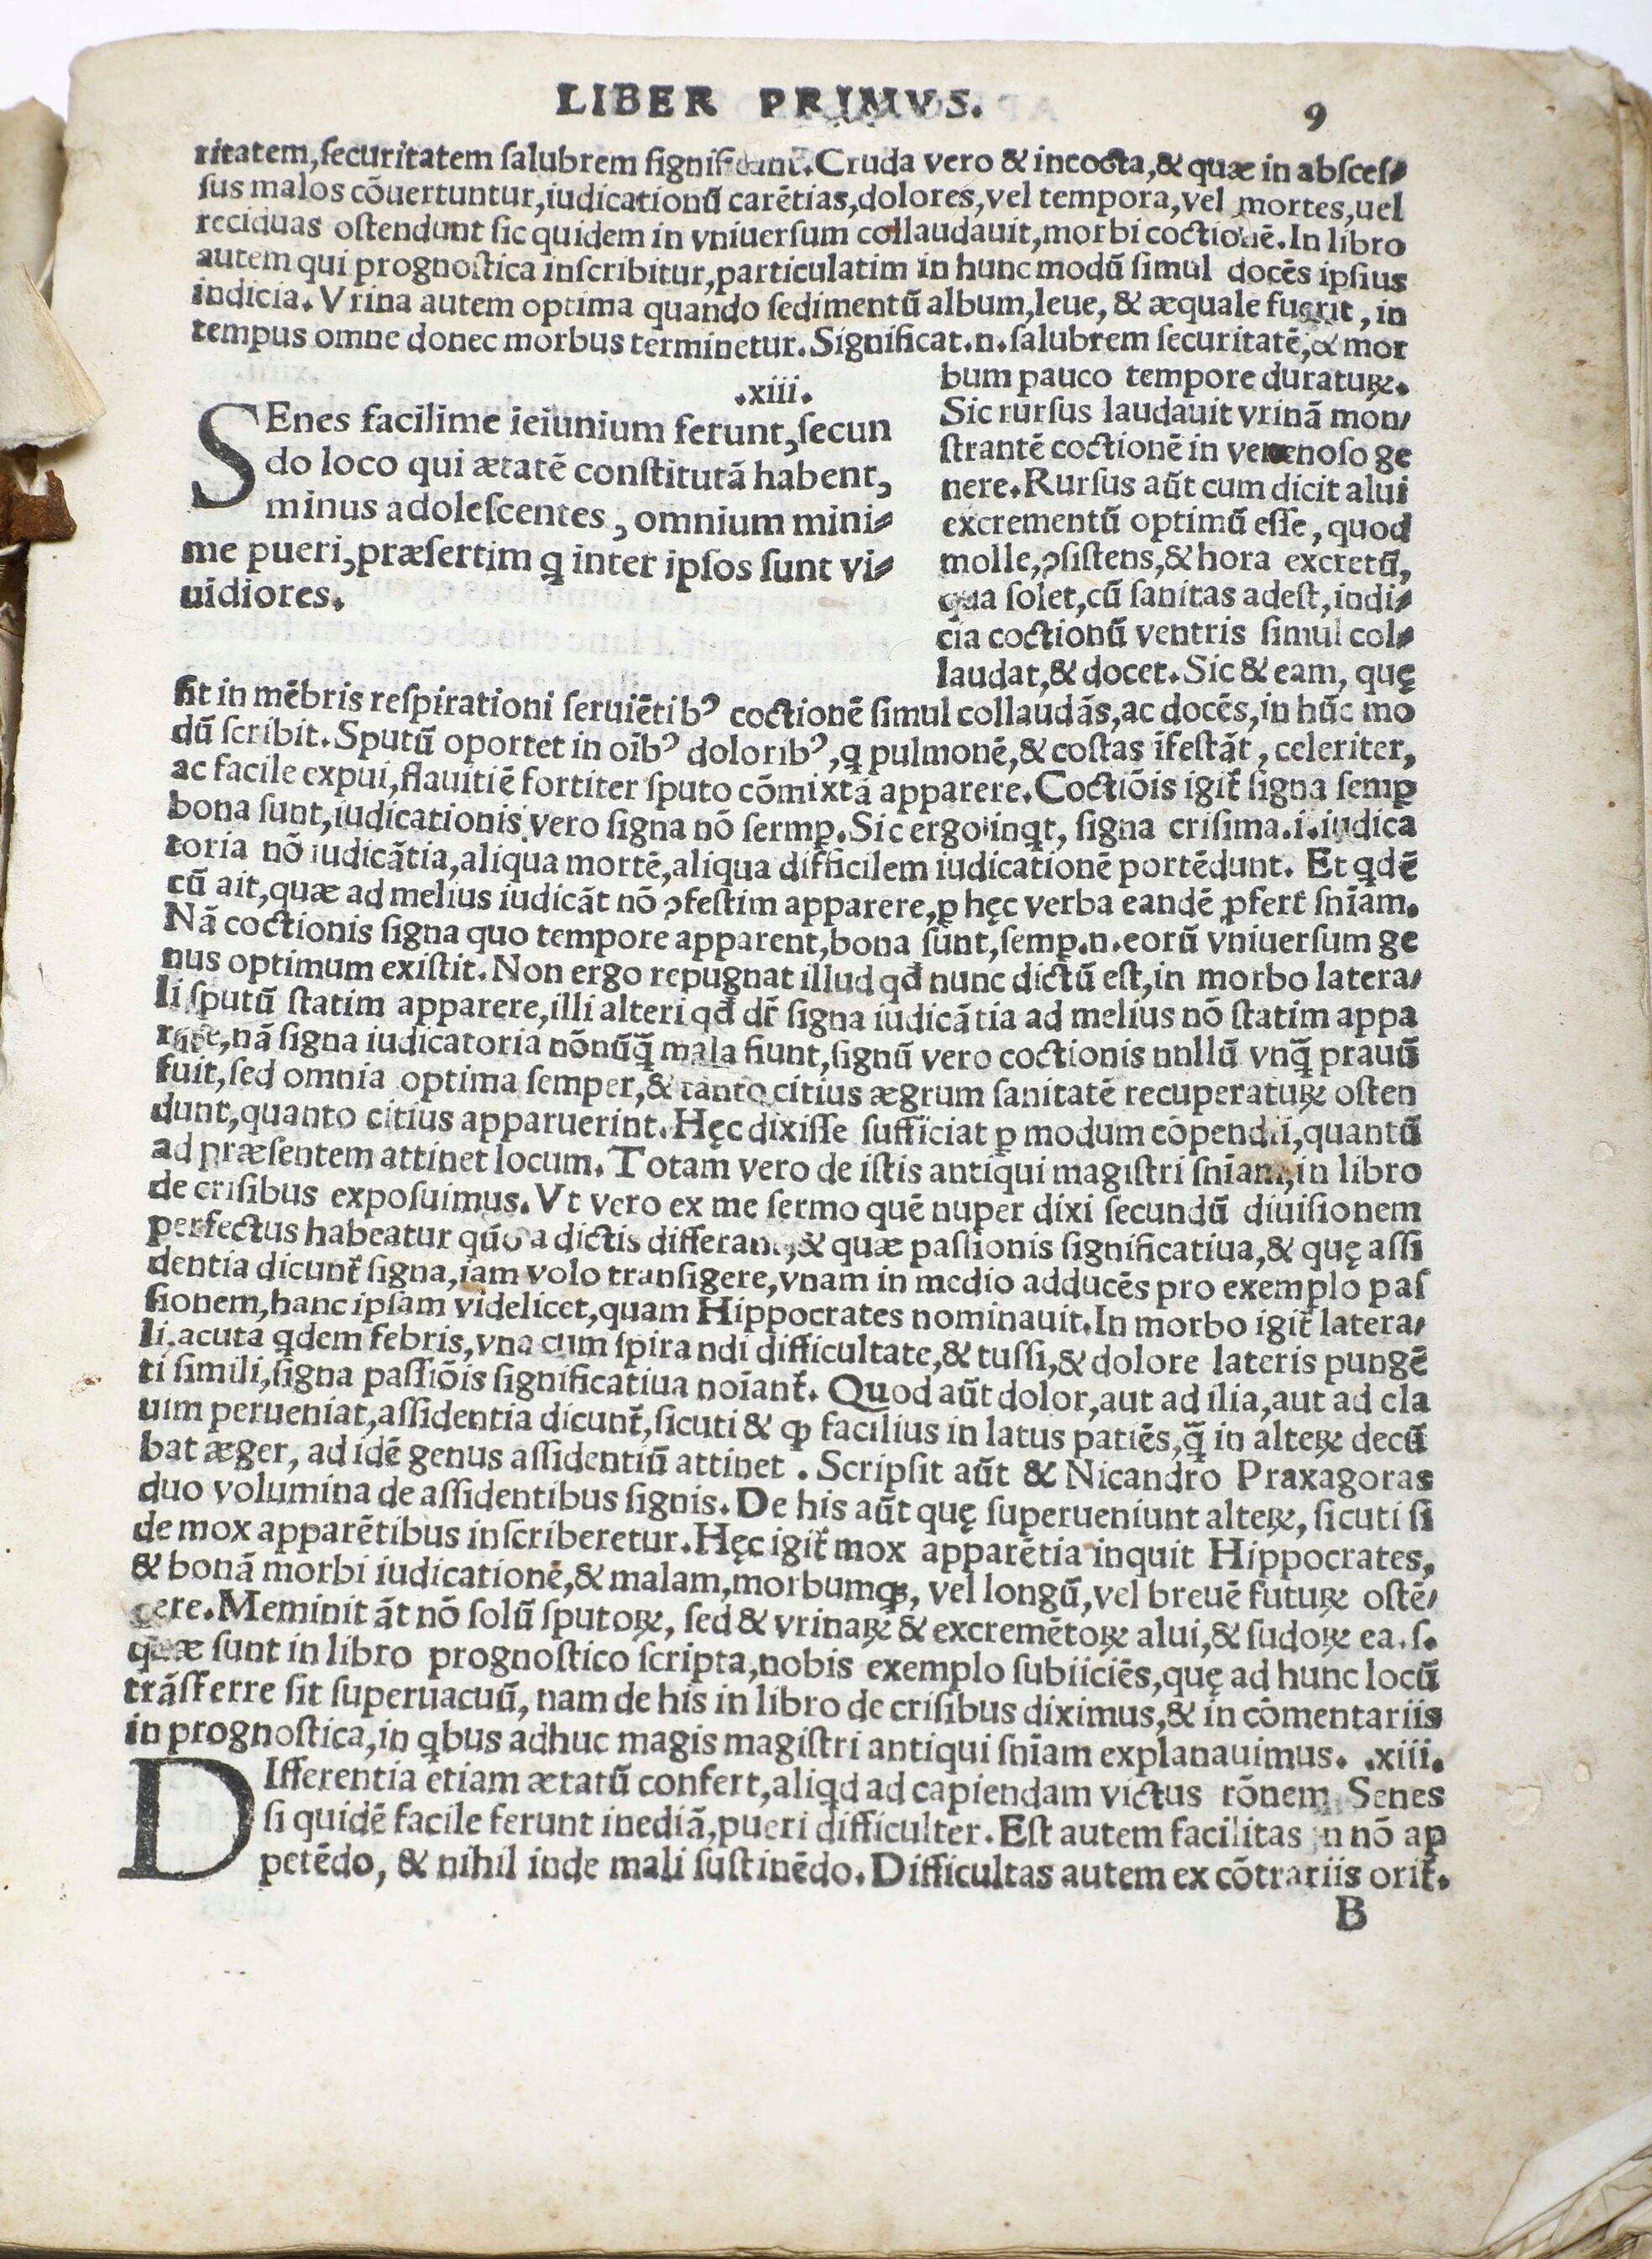 LIBER PRIMVS. 9
ritatem, ſecuritatem ſalubrem Cruda vero & incocta, & quæ in abſceſ⸗
ſus malos cõuertuntur, iudicationũ carẽtias, dolores, vel tempora, vel mortes, uel
reciduas oſtendunt ſic quidem in vniuerſum collaudauit, morbi coctionẽ. In libro
autem qui prognoſtica inſcribitur, particulatim in hunc modũ ſimul docẽs ipſius
indicia. Vrina autem optima quando ſedimentũ album, leue, & æquale fuerit, in
tempus omne donec morbus terminetur. Significat.n.ſalubrem ſecuritatẽ, & mor
bum pauco tempore duraturꝝ.
Sic rurſus laudauit vrinã mon/
ſtrantẽ coctionẽ in venenoſo ge
nere. Rurſus aũt cum dicit alui
excrementũ optimũ eſſe, quod
molle, ꝯſiſtens, & hora excretũ,
qua ſolet, cũ ſanitas adeſt, indi⸗
cia coctionũ ventris ſimul col⸗
laudat, & docet. Sic & eam, quę
.xiii.
SEnes facilime ieiunium ferunt, ſecun
do loco qui ætatẽ conſtitutã habent,
minus adoleſcentes, omnium mini⸗
me pueri, præſertim ꝗ inter ipſos ſunt vi⸗
uidiores.
fit in mẽbris reſpirationi ſeruiẽtibꝰ coctionẽ ſimul collaudãs, ac docẽs, in hũc mo
dũ ſcribit. Sputũ oportet in oĩbꝰ doloribꝰ, ꝗ pulmonẽ, & coſtas ĩfeſtãt, celeriter,
ac facile expui, flauitiẽ fortiter ſputo cõmixtã apparere. Coctiõis igit̃ ſigna ſemꝑ
bona ſunt, iudicationis vero ſigna nõ ſermꝑ. Sic ergo inqꝗt, ſigna criſima.i.iudica
toria nõ iudicãtia, aliqua mortẽ, aliqua difficilem iudicationẽ portẽdunt. Et ꝗdẽ
cũ ait, quæ ad melius iudicãt nõ ꝯfeſtim apparere, ꝑ hęc verba eandẽ ꝓfert ſnĩam.
Nã coctionis ſigna quo tempore apparent, bona ſunt, ſemꝑ.n.eorũ vniuerſum ge
nus optimum exiſtit. Non ergo repugnat illud qđ nunc dictũ eſt, in morbo latera/
li ſputũ ſtatim apparere, illi alteri qđ dr̃ ſigna iudicãtia ad melius nõ ſtatim appa
rere, nã ſigna iudicatoria nõnũq̃ mala fiunt, ſignũ vero coctionis nnllũ vnq̃ prauũ
fuit, ſed omnia optima ſemper, & tanto citius ægrum ſanitatẽ recuperaturꝝ oſten
dunt, quanto citius apparuerint. Hęc dixiſſe ſufficiat ꝑ modum cõpendii, quantũ
ad præſentem attinet locum. Totam vero de iſtis antiqui magiſtri ſnĩam, in libro
de criſibus expoſuimus. Vt vero ex me ſermo quẽ nuper dixi ſecundũ diuiſionem
perfectus habeatur a dictis & quæ paſſionis ſignificatiua, & quę aſſi
dentia dicunt̃ ſigna, iam volo tranſigere, vnam in medio adducẽs pro exemplo paſ
ſionem, hanc ipſam videlicet, quam Hippocrates nominauit. In morbo igit̃ latera/
li. acuta ꝗdem febris, vna cum ſpirandi difficultate, & tuſſi, & dolore lateris pungẽ
ti ſimili, ſigna paſſiõis ſignificatiua noĩant̃. Quod aũt dolor, aut ad ilia, aut ad cla
uim perueniat, aſſidentia dicunt̃, ſicuti & ꝙ facilius in latus patiẽs, q̃ in alteꝝ decũ
bat æger, ad idẽ genus aſſidentiũ attinet. Scripſit aũt & Nicandro Praxagoras
duo volumina de aſſidentibus ſignis. De his aũt quę ſuperueniunt alteꝝ, ſicuti ſi
de mox apparẽtibus inſcriberetur. Hęc igit̃ mox apparẽtia inquit Hippocrates,
& bonã morbi iudicationẽ, & malam, morbumqꝫ, vel longũ, vel breuẽ futuꝝ oſtẽ/
dere. Meminit ãt nõ ſolũ ſputoꝝ, ſed & vrinaꝝ & excremẽtoꝝ alui, & ſudoꝝ ea.ſ.
quæ ſunt in libro prognoſtico ſcripta, nobis exemplo ſubiiciẽs, quę ad hunc locũ
trãſferre ſit ſuperuacuũ, nam de his in libro de criſibus diximus, & in cõmentariis
in prognoſtica, in ꝗbus adhuc magis magiſtri antiqui ſnĩam explanauimus. .xiii.
DIfferentia etiam ætatũ confert, aliꝗd ad capiendam victus rõnem Senes
ſi quidẽ facile ferunt inediã, pueri difficulter. Eſt autem facilitas in nõ ap
petẽdo, & nihil inde mali ſuſtinẽdo. Difficultas autem ex cõtrariis orit̃.
B